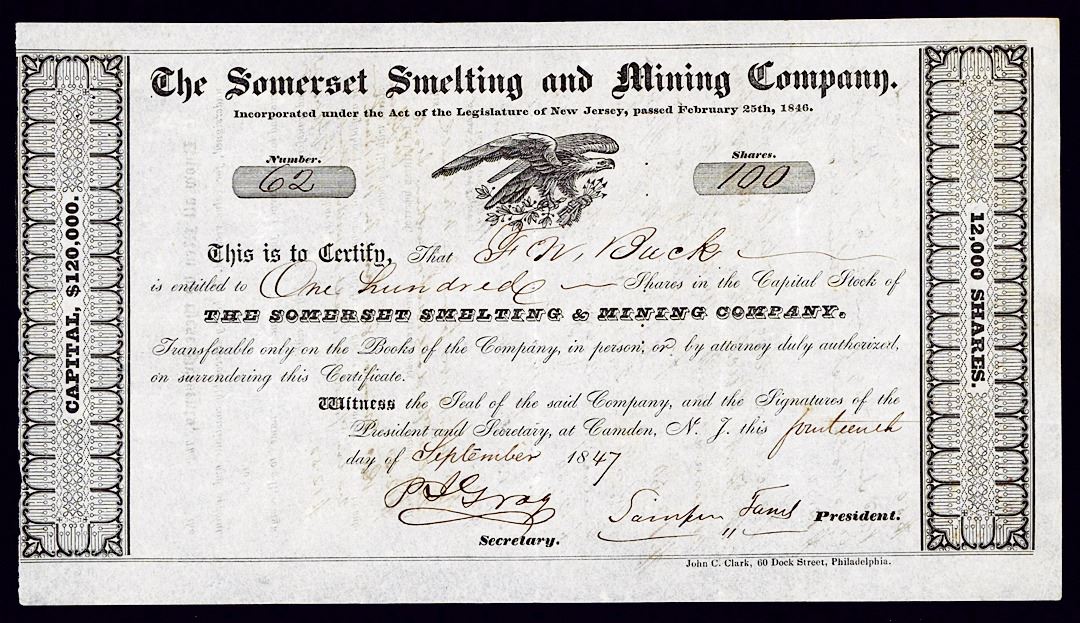 The Somerset Smelting and Mining Company.
Incorporated under the Act of the Legislature of New Jersey, passed February 25th, 1846.
Number.
62
Shares.
100
CAPITAL, $120,000.
12,000 SHARES.
This is to Certify, That F W. Buck
is entitled to One hundred Shares in the Capital Stock of
THE SOMERSET SMELTING & MINING COMPANY.
Transferable only on the Books of the Company, in person, or by attorney duly authorized,
on surrendering this Certificate.
Witness the Seal of the said Company, and the Signatures of the
President and Secretary, at Camden, N. J. this fourteenth
day of September 1847
Gray
President.
Secretary.
John C. Clark, 60 Dock Street, Philadelphia.